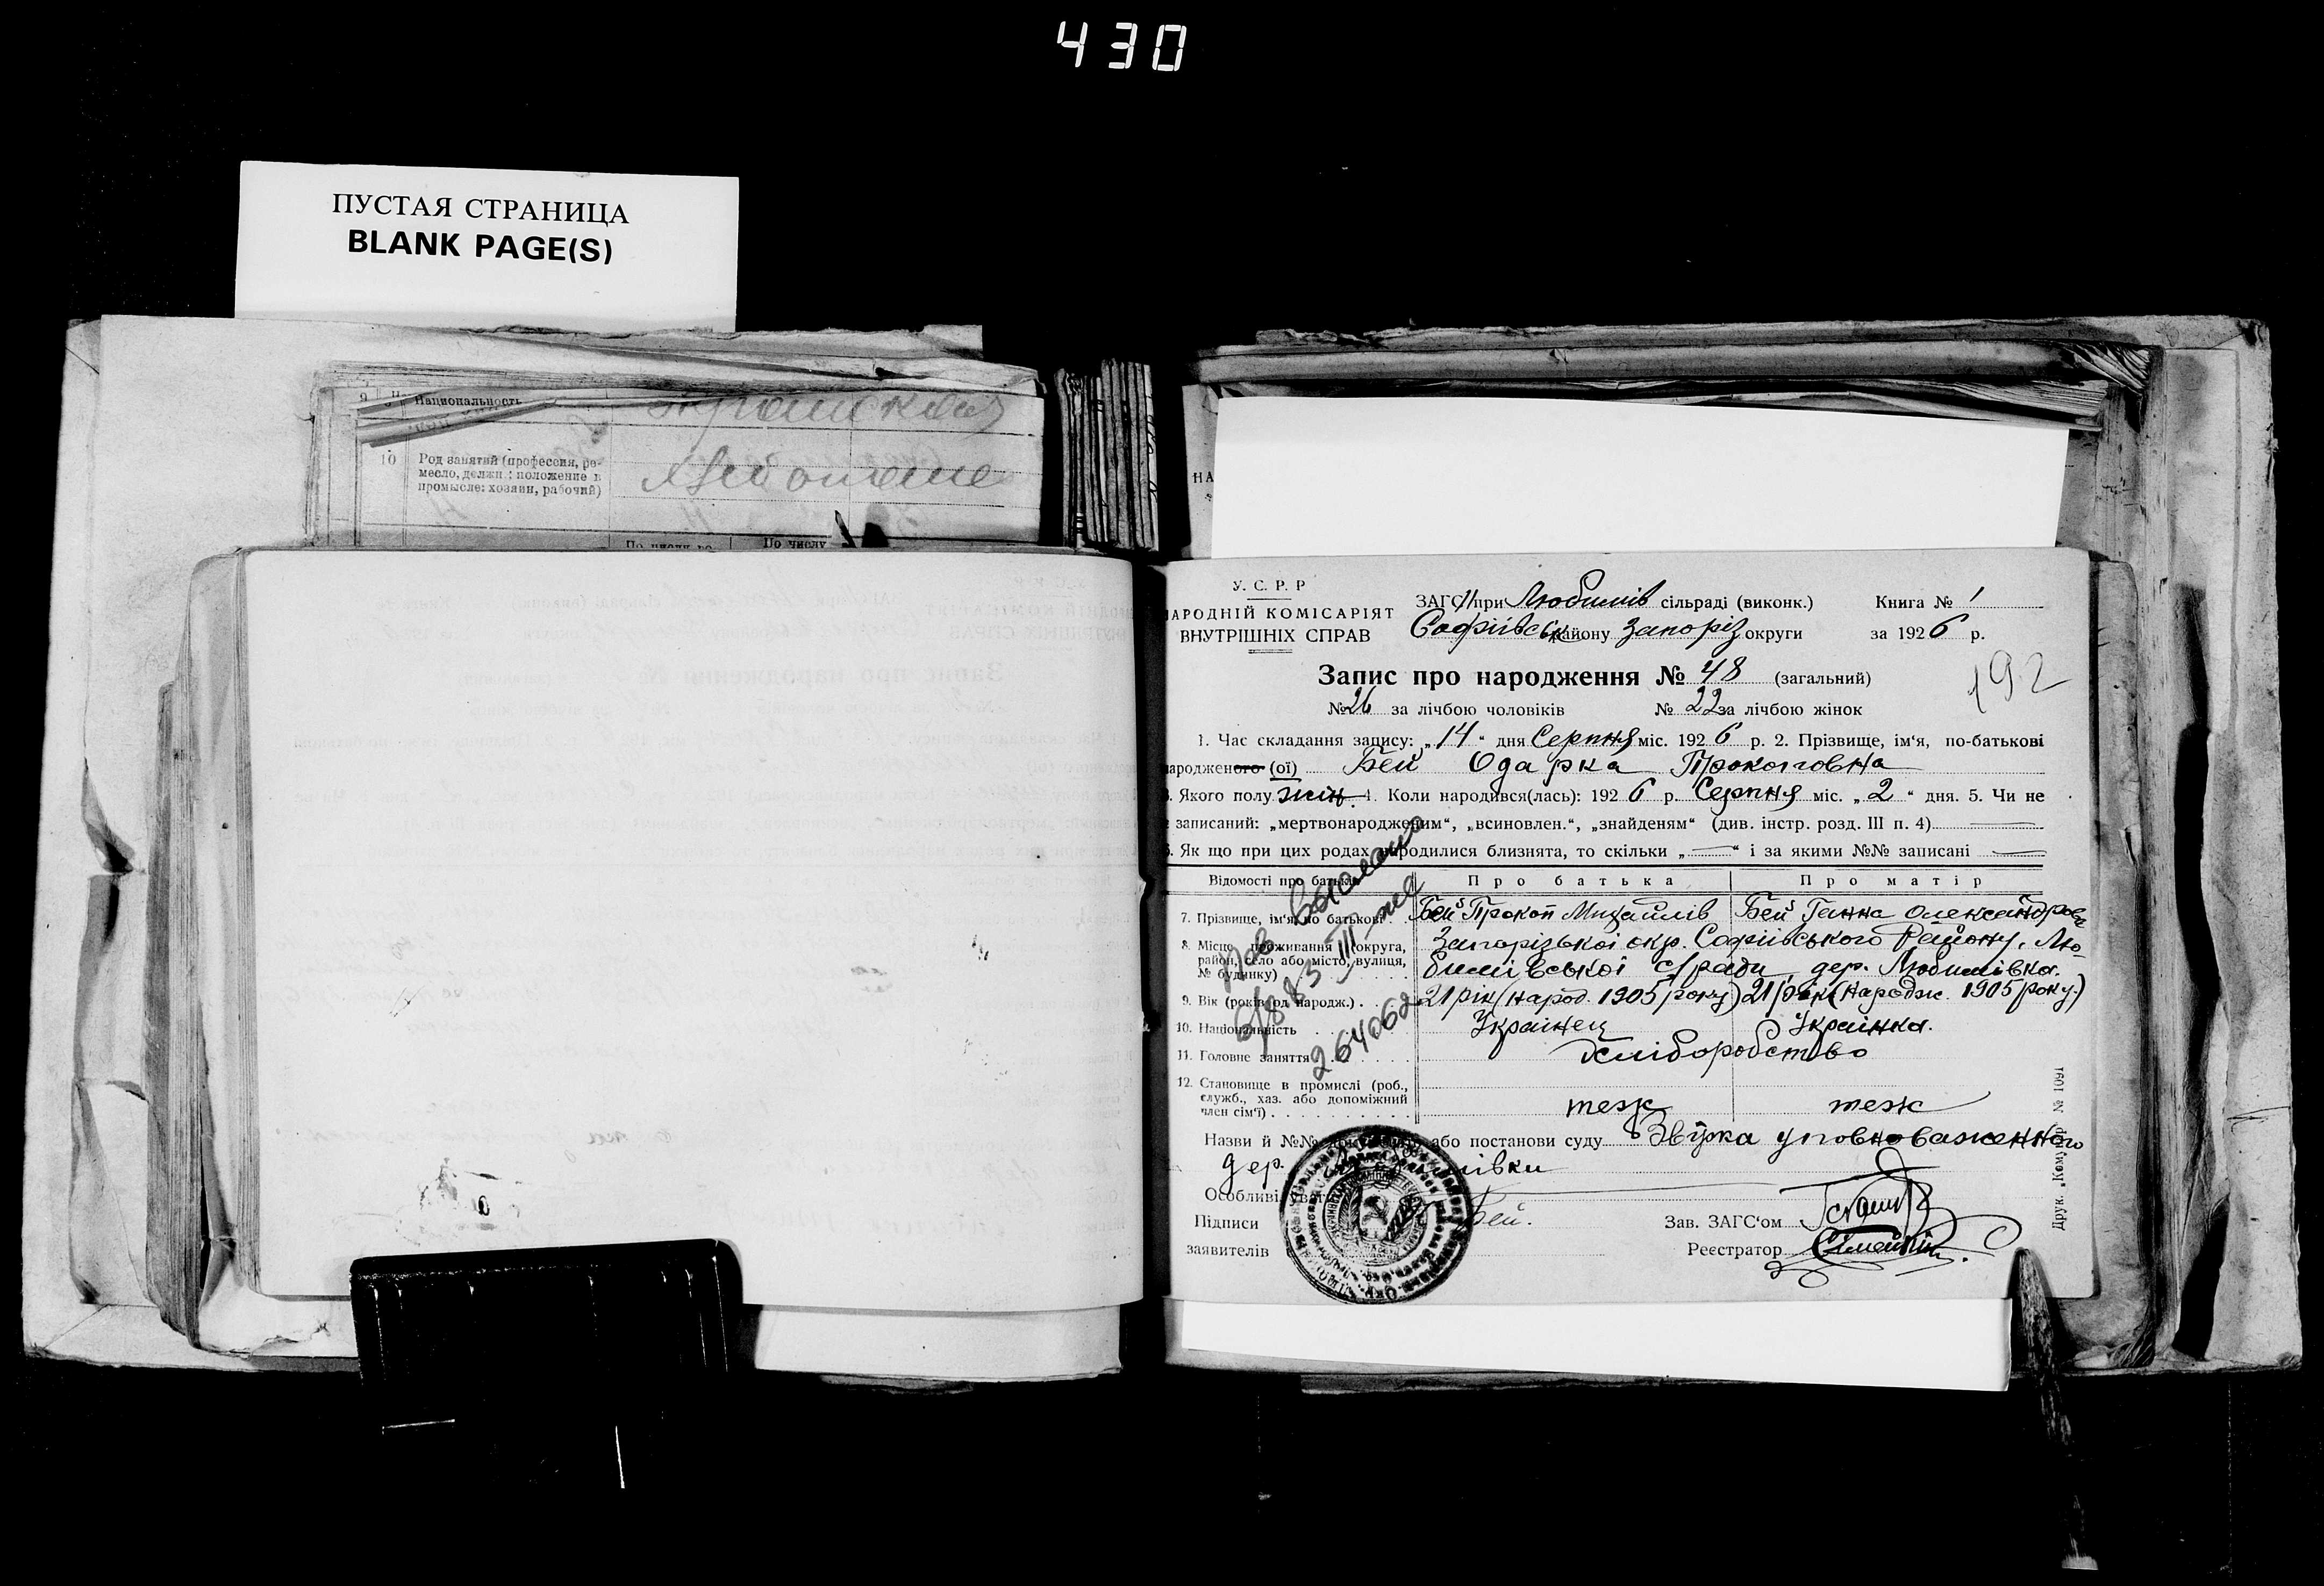 430
ПУСТАЯ СТРАНИЦА
BLANK PAGE(S)
9 Национальность
10 Род занятий (профессия, ре-
месло, должн.: положение в
промысле: хозяин, рабочий)
По числу
НА
У. С. Р. Р
АРОДНІЙ КОМІСАРІЯТ
ВНУТРІШНІХ СПРАВ
ЗАГС при Любимів сільраді (виконк.) Книга № 1
Софіївськ району Запоріз округи за 1926 р.
Запис про народження № 48 (загальний)
192
№ 26 за лічбою чоловіків № 22 за лічбою жінок
1. Час складання запису: „14“ дня Серпня міс. 1926 р. 2. Прізвище, ім‘я, по-батькові
ародженого (ої) Бей Одарка Прокоповна
3. Якого полу жін. 4. Коли народився(лась): 1926 р. Серпня міс. „2“ дня. 5. Чи не
записаний: „мертвонародженим“, „всиновлен.“, „знайденям“ (див. інстр. розд. III п. 4)
6. Як що при цих родах народилися близнята, то скільки „—“ і за якими №№ записані —
Відомості про батьків Про батька Про матір
7. Прізвище, ім‘я, по батькові Бей Прокоп Михайлів Бей Ганна Олександрова
8. Місце проживання (округа, Запорізької окр. Софіївського Району, Лю-
район, село або місто, вулиця, бимівської с/ради, дер. Любимівка.
№ будинку)
9. Вік (років од народж.) 21 рік (народ. 1905 року) 21 рік (народж. 1905 року.)
10. Національність Українец Українка.
11. Головне заняття Хліборобство
12. Становище в промислі (роб.,
служб., хаз. або допоміжний
член сім‘ї) теж теж
III
264062
Назви й №№ або постанови суду Звірка уповноваженного
дер. івки
Особливі уваги
Підписи Бей. Зав. ЗАГС‘ом
заявителів Реєстратор
Друк. „Комунар № 1091